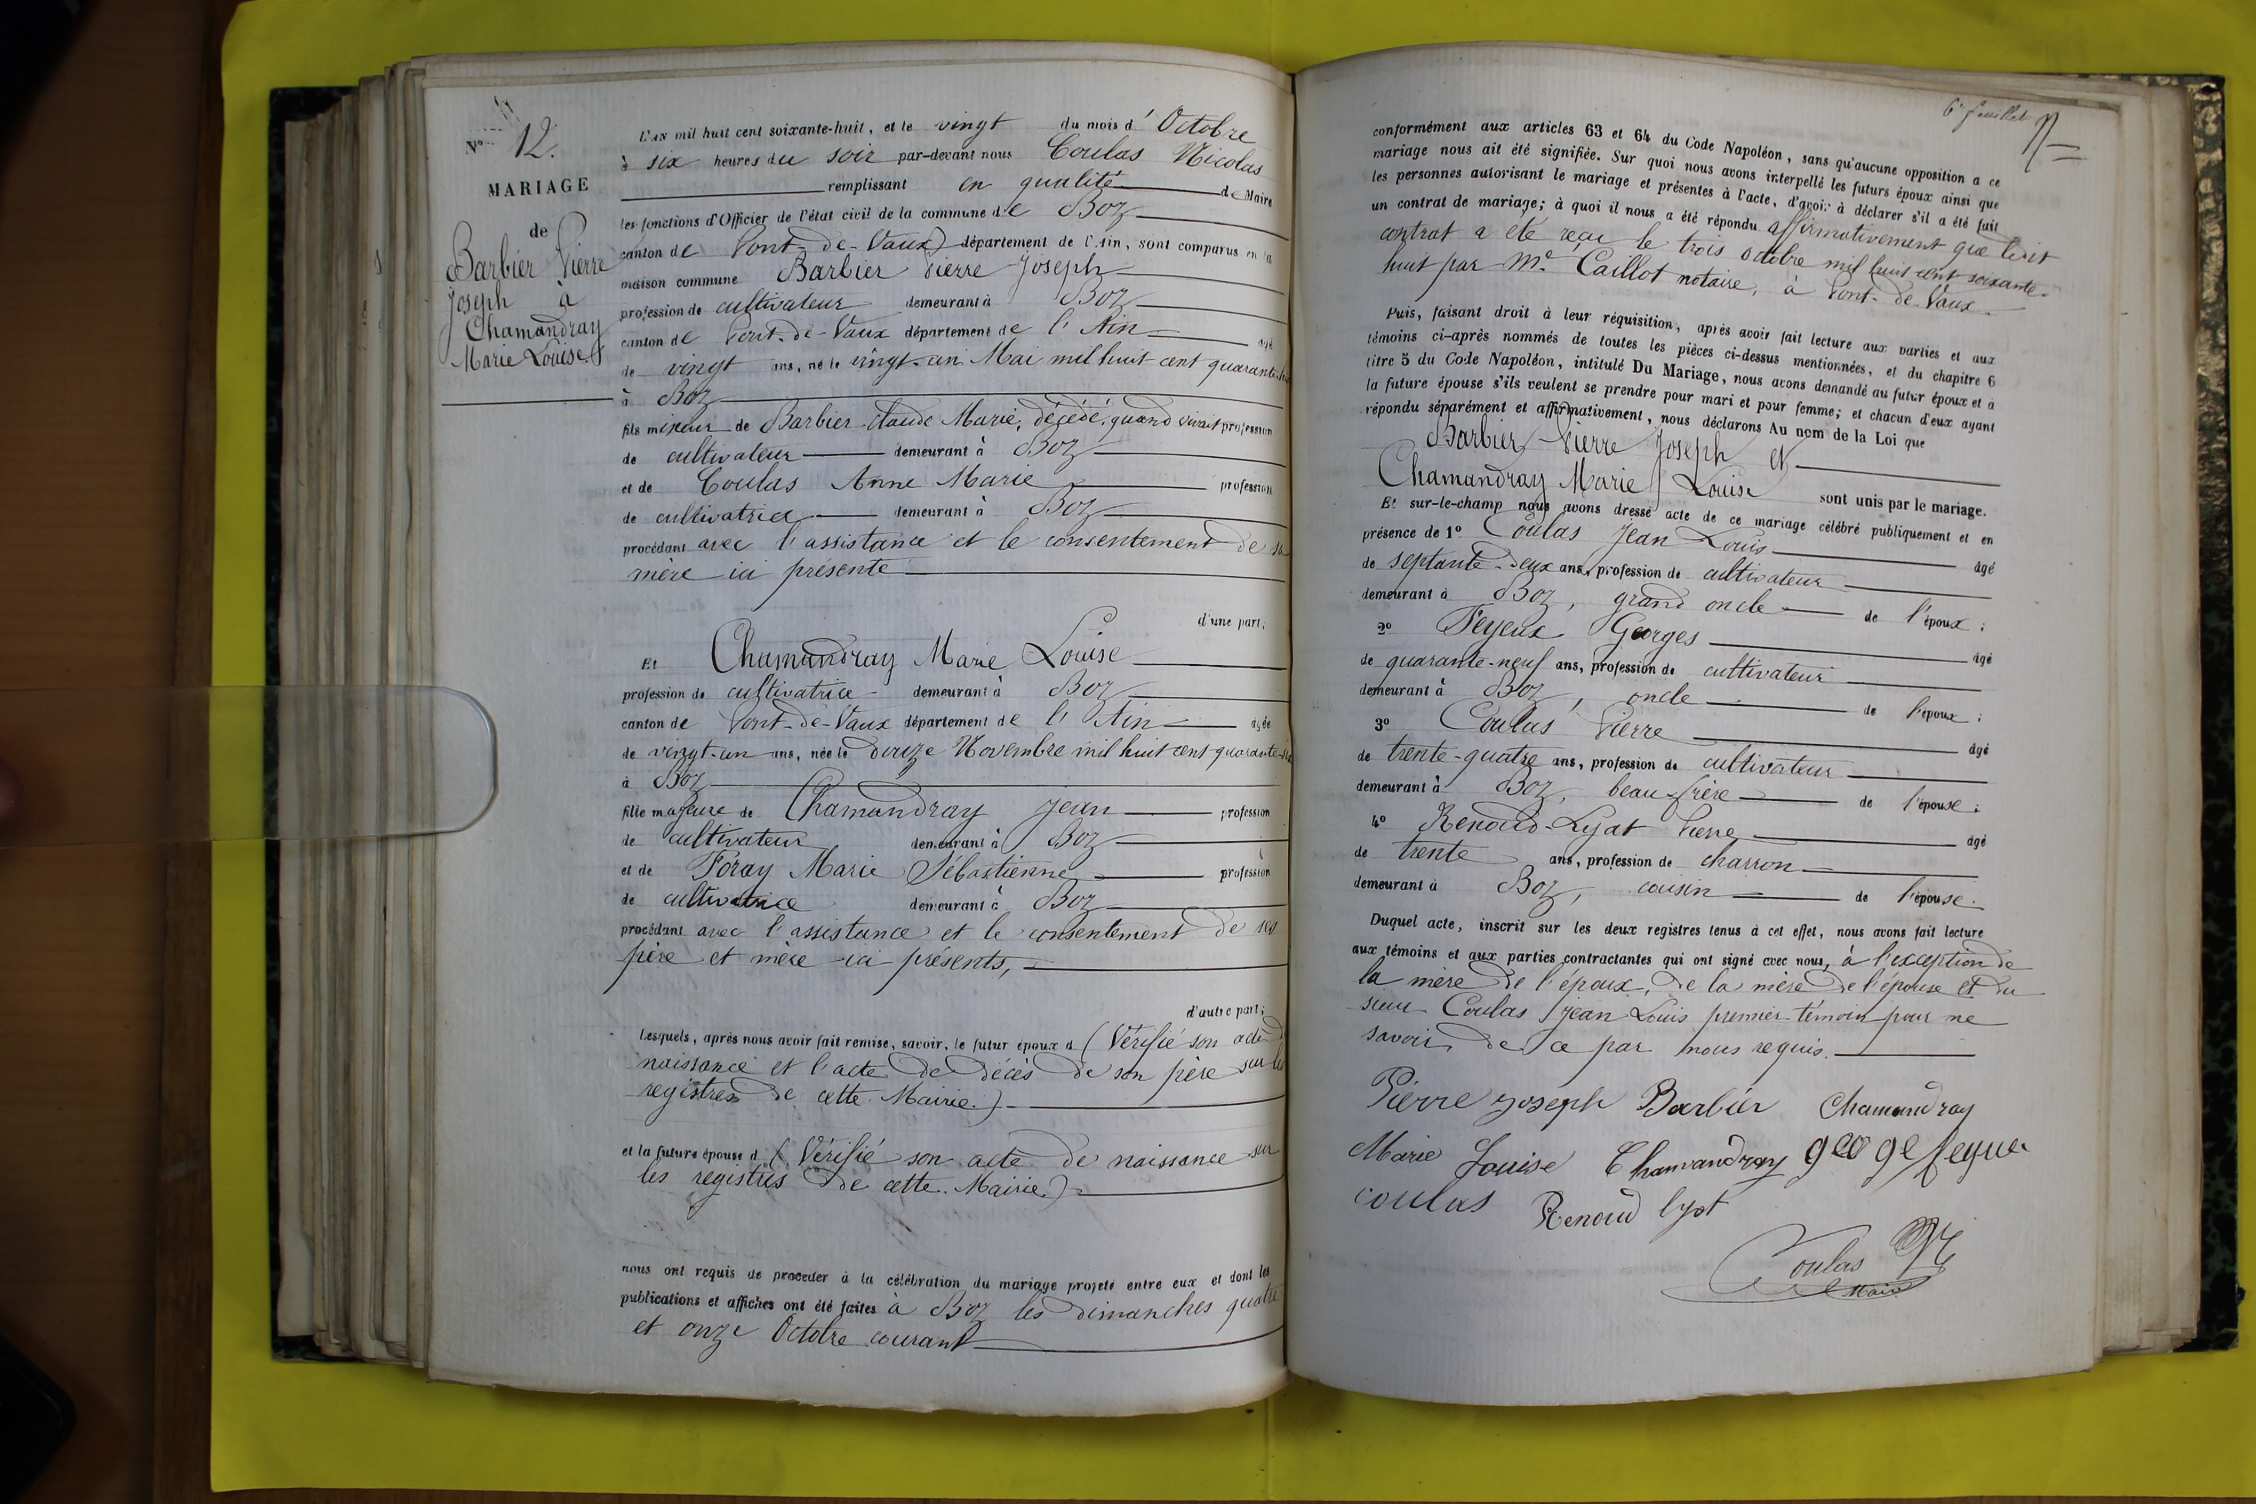 N° 12.
MARIAGE
de
Barbier Pierre
Joseph à
Chamandray
Marie Louise
L'AN mil huit cent soixante-huit, et le vingt du mois d'Octobre
à six heures du soir par-devant nous Coulas Nicolas
remplissant en qualité de Maire
les fonctions d'Officier de l'état civil de la commune de Boz
canton de Pont-de-Vaux département de l'Ain, sont comparus en la
maison commune Barbier Pierre Joseph
profession de cultivateur demeurant à Boz
canton de Pont-de-Vaux département de l'Ain âgé
de vingt ans, né le vingt-un Mai mil huit cent quarante-huit
à Boz
fils mineur de Barbier Claude Marie, décédé, quand vivait profession
de cultivateur demeurant à Boz
et de Coulas Anne Marie profession
de cultivatrice demeurant à Boz
procédant avec l'assistance et le consentement de sa
mère ici présente
d'une part;
Et Chamandray Marie Louise
profession de cultivatrice demeurant à Boz
canton de Pont-de-Vaux département de l'Ain âgée
de vingt-un ans, née le douze Novembre mil huit cent quarante-six
à Boz
fille majeure de Chamandray Jean profession
de cultivateur demeurant à Boz
et de Foray Marie Sébastienne profession
de cultivatrice demeurant à Boz
procédant avec l'assistance et le consentement de ses
père et mère ici présents,
d'autre part;
Lesquels, après nous avoir fait remise, savoir, le futur époux d (Vérifié son acte de
naissance et l'acte de décès de son père sur les
registres de cette Mairie.)
et la future épouse d (Vérifié son acte de naissance sur
les registres de cette Mairie.)
nous ont requis de procéder à la célébration du mariage projeté entre eux et dont les
publications et affiches ont été faites à Boz les dimanches quatre
et onze Octobre courant
6e feuillet
conformément aux articles 63 et 64 du Code Napoléon, sans qu'aucune opposition a ce
mariage nous ait été signifiée. Sur quoi nous avons interpellé les futurs époux ainsi que
les personnes autorisant le mariage et présentes à l'acte, d'avoir à déclarer s'il a été fait
un contrat de mariage; à quoi il nous a été répondu affirmativement que ledit
contrat a été reçu le trois octobre mil huit cent soixante-
huit par Me Caillot notaire, à Pont-de-Vaux.
Puis, faisant droit à leur réquisition, après avoir fait lecture aux parties et aux
témoins ci-après nommés de toutes les pièces ci-dessus mentionnées, et du chapitre 6
titre 5 du Code Napoléon, intitulé Du Mariage, nous avons demandé au futur époux et à
la future épouse s'ils veulent se prendre pour mari et pour femme; et chacun d'eux ayant
répondu séparément et affirmativement, nous déclarons Au nom de la Loi que
Barbier Pierre Joseph et
Chamandray Marie Louise sont unis par le mariage.
Et sur-le-champ nous avons dressé acte de ce mariage célébré publiquement et en
présence de 1° Coulas Jean Louis âgé
de septante-deux ans, profession de cultivateur
demeurant à Boz, grand oncle de l'époux;
2° Feyeux Georges âgé
de quarante-neuf ans, profession de cultivateur
demeurant à Boz, oncle de l'époux;
3° Coulas Pierre âgé
de trente-quatre ans, profession de cultivateur
demeurant à Boz, beau-frère de l'épouse;
4° Renoud-Lyat Pierre âgé
de trente ans, profession de charron
demeurant à Boz, cousin de l'épouse.
Duquel acte, inscrit sur les deux registres tenus à cet effet, nous avons fait lecture
aux témoins et aux parties contractantes qui ont signé avec nous, à l'exception de
la mère de l'époux, de la mère de l'épouse et du
sieur Coulas Jean Louis premier témoin pour ne
savoir, de ce par nous requis.
Pierre Joseph Barbier Chamandray
Marie Louise Chamandray
coulas Renoud lyat
Coulas
Maire